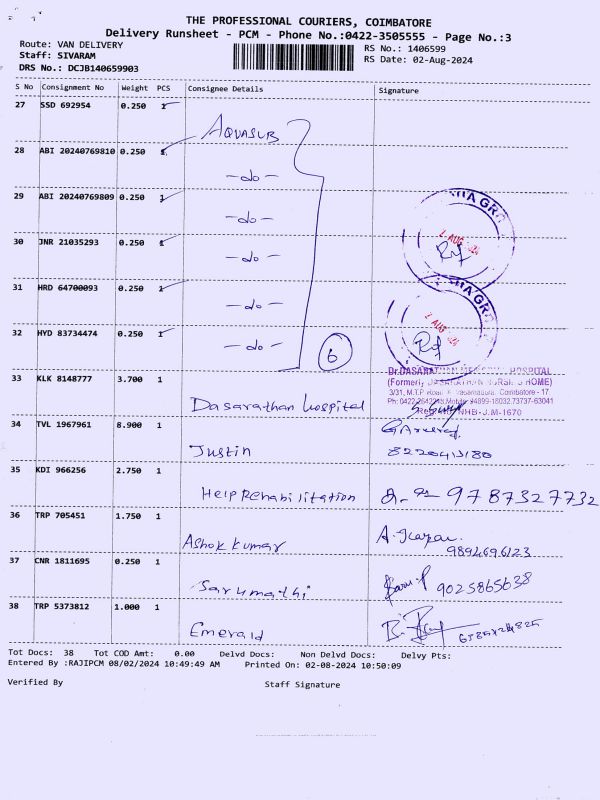 THE PROFESSIONAL COURIERS, COIMBATORE
Delivery Runsheet - PCM - Phone No.:0422-3505555 - Page No.:3
Route: VAN DELIVERY RS No.: 1406599
Staff: SIVARAM RS Date: 02-Aug-2024
DRS No.: DCJB140659903
S No Consignment No Weight PCS Consignee Details Signature
27 SSD 692954 0.250 1
AQUASUB
28 ABI 20240769810 0.250 1
-do-
29 ABI 20240769809 0.250 1
-do-
30 JNR 21035293 0.250 1
-do-
31 HRD 64700093 0.250 1
-do-
32 HYD 83734474 0.250 1
-do- 6
33 KLK 8148777 3.700 1
Dasarathan hospital
34 TVL 1967961 8.900 1
Justin
35 KDI 966256 2.750 1
Help Rehabilitation 9787327732
36 TRP 705451 1.750 1
Ashok kumar
37 CNR 1811695 0.250 1
Sarumathi 9025865638
38 TRP 5373812 1.000 1
Emerald
Tot Docs: 38 Tot COD Amt: 0.00 Delvd Docs: Non Delvd Docs: Delvy Pts:
Entered By :RAJIPCM 08/02/2024 10:49:49 AM Printed On: 02-08-2024 10:50:09
Verified By Staff Signature